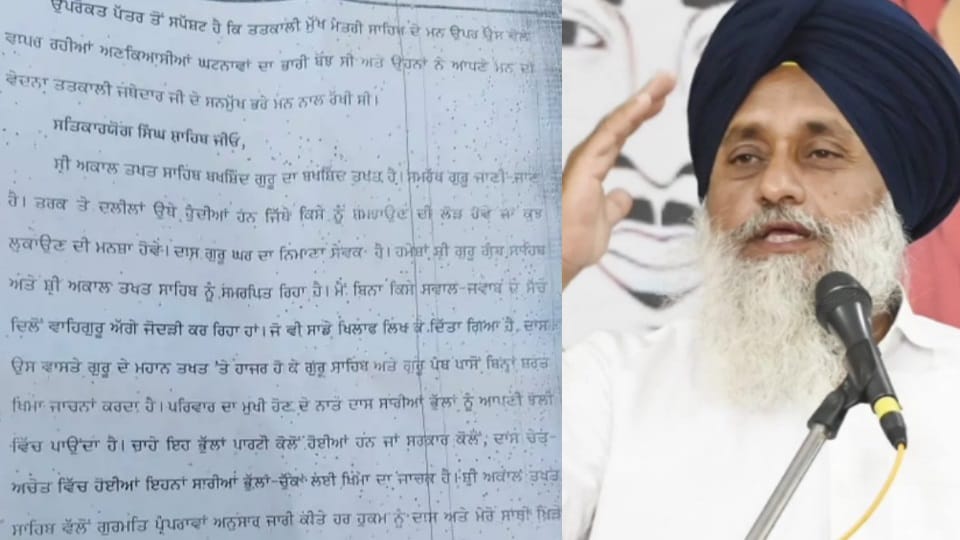 ਉਪਰੋਕਤ ਪੱਤਰ ਤੋਂ ਸਪੱਸ਼ਟ ਹੈ ਕਿ ਤਤਕਾਲੀ ਮੁੱਖ ਮੰਤਰੀ ਸਾਹਿਬ ਦੇ ਮਨ ਉਪਰ ਉਸ ਵੇਲੇ
ਵਾਪਰ ਰਹੀਆਂ ਅਣਕਿਆਸੀਆਂ ਘਟਨਾਵਾਂ ਦਾ ਭਾਰੀ ਬੋਝ ਸੀ ਅਤੇ ਉਹਨਾਂ ਨੇ ਆਪਣੇ ਮਨ ਦੀ
ਵੇਦਨਾ ਤਤਕਾਲੀ ਜਥੇਦਾਰ ਜੀ ਦੇ ਸਨਮੁੱਖ ਭਰੇ ਮਨ ਨਾਲ ਰੱਖੀ ਸੀ।
ਸਤਿਕਾਰਯੋਗ ਸਿੰਘ ਸਾਹਿਬ ਜੀਓ,
ਸ਼੍ਰੀ ਅਕਾਲ ਤਖਤ ਸਾਹਿਬ ਬਖਸ਼ਿੰਦ ਗੁਰੂ ਦਾ ਬਖਸ਼ਿੰਦ ਤਖਤ ਹੈ। ਸਮਰੱਥ ਗੁਰੂ ਜਾਣੀ-ਜਾਣ
ਹੈ। ਤਰਕ ਤੇ ਦਲੀਲਾਂ ਉਥੇ ਹੁੰਦੀਆਂ ਹਨ ਜਿੱਥੇ ਕਿਸੇ ਨੂੰ ਸਮਝਾਉਣ ਦੀ ਲੋੜ ਹੋਵੇ ਜਾਂ ਕੁਝ
ਲੁਕਾਉਣ ਦੀ ਮਨਸ਼ਾ ਹੋਵੇ। ਦਾਸ ਗੁਰੂ ਘਰ ਦਾ ਨਿਮਾਣਾ ਸੇਵਕ ਹੈ। ਹਮੇਸ਼ਾਂ ਸ਼੍ਰੀ ਗੁਰੂ ਗ੍ਰੰਥ ਸਾਹਿਬ
ਅਤੇ ਸ਼੍ਰੀ ਅਕਾਲ ਤਖਤ ਸਾਹਿਬ ਨੂੰ ਸਮਰਪਿਤ ਰਿਹਾ ਹੈ। ਮੈਂ ਬਿਨਾ ਕਿਸੇ ਸਵਾਲ-ਜਵਾਬ ਦੇ ਸੱਚੇ
ਦਿਲੋਂ ਵਾਹਿਗੁਰੂ ਅੱਗੇ ਜੋਦੜੀ ਕਰ ਰਿਹਾ ਹਾਂ। ਜੋ ਵੀ ਸਾਡੇ ਖਿਲਾਫ ਲਿਖ ਕੇ ਦਿੱਤਾ ਗਿਆ ਹੈ, ਦਾਸ
ਉਸ ਵਾਸਤੇ ਗੁਰੂ ਦੇ ਮਹਾਨ ਤਖਤ 'ਤੇ ਹਾਜਰ ਹੋ ਕੇ ਗੁਰੂ ਸਾਹਿਬ ਅਤੇ ਗੁਰੂ ਪੰਥ ਪਾਸੋਂ ਬਿਨ੍ਹਾਂ ਸ਼ਰਤ
ਖਿਮਾ ਜਾਚਨਾਂ ਕਰਦਾ ਹੈ। ਪਰਿਵਾਰ ਦਾ ਮੁਖੀ ਹੋਣ ਦੇ ਨਾਤੇ ਦਾਸ ਸਾਰੀਆਂ ਭੁੱਲਾਂ ਨੂੰ ਆਪਣੀ ਝੋਲੀ
ਵਿੱਚ ਪਾਉਂਦਾ ਹੈ। ਚਾਹੇ ਇਹ ਭੁੱਲਾਂ ਪਾਰਟੀ ਕੋਲੋਂ ਹੋਈਆਂ ਹਨ ਜਾਂ ਸਰਕਾਰ ਕੋਲੋਂ, ਦਾਸ ਚੇਤ-
ਅਚੇਤ ਵਿੱਚ ਹੋਈਆਂ ਇਹਨਾਂ ਸਾਰੀਆਂ ਭੁੱਲਾਂ-ਚੁੱਕਾਂ ਲਈ ਖਿਮਾ ਦਾ ਜਾਚਕ ਹੈ। ਸ਼੍ਰੀ ਅਕਾਲ ਤਖਤ
ਸਾਹਿਬ ਵੱਲੋਂ ਗੁਰਮਤਿ ਪ੍ਰੰਪਰਾਵਾਂ ਅਨੁਸਾਰ ਜਾਰੀ ਕੀਤੇ ਹਰ ਹੁਕਮ ਨੂੰ ਦਾਸ ਅਤੇ ਮੇਰੇ ਸਾਥੀ ਖਿੜੇ